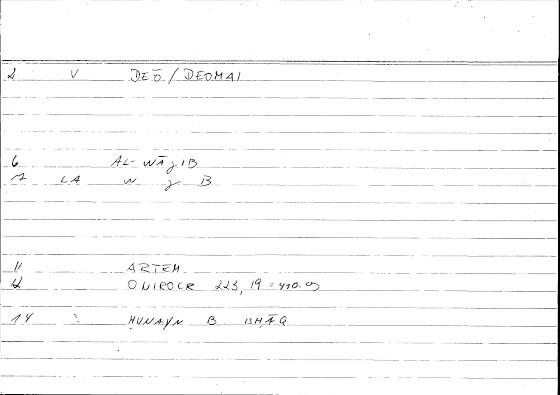 2 V DEŌ / DEOMAI
6 AL-WĀǧIB
7 LA W ǧ B
11 ARTEM
12 ONIROCR 223, 19 = 410.9
14 : ḤUNAYN B ISḤĀQ